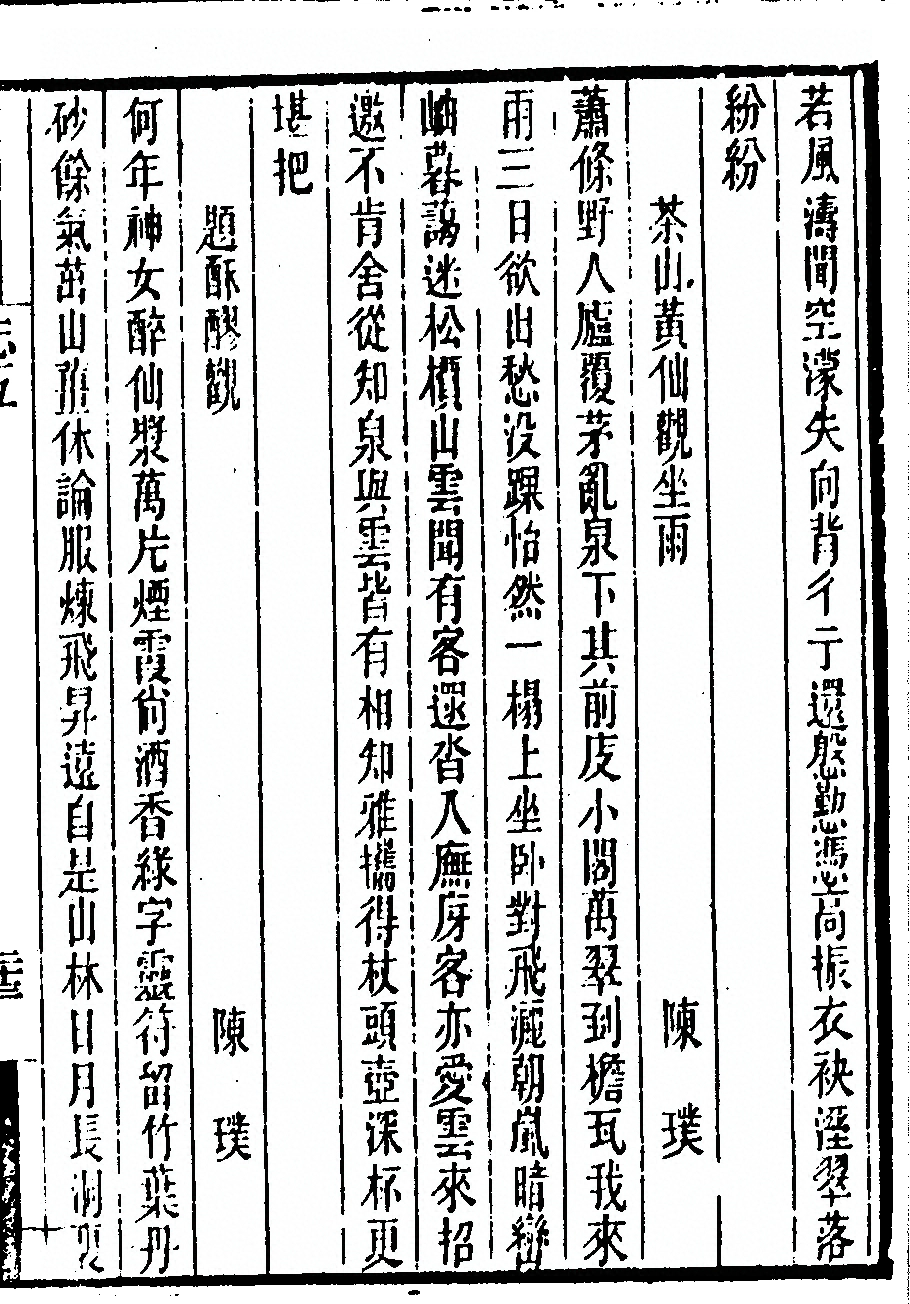 若風濤聞空濛失向背彳亍還慇懃憑高振衣袂溼翠落
紛紛
茶山黃仙觀坐雨
陳璞
蕭條野人廬覆茅亂泉下其前庋小閣萬翠到檐瓦我來
雨三日欲出愁没踝怡然一榻上坐卧對飛灑朝嵐暗巒
岫暮靄迷松檟山雲聞有客還沓入廡庌客亦愛雲來招
邀不肯舍從知泉與雲皆有相知雅攜得杖頭壺深杯更
堪把
題酥醪觀
陳璞
何年神女醉仙漿萬片煙霞尙酒香綠字靈符留竹葉丹
砂餘氣茁山薤休論服煉飛昇遠自是山林日月長洞裏